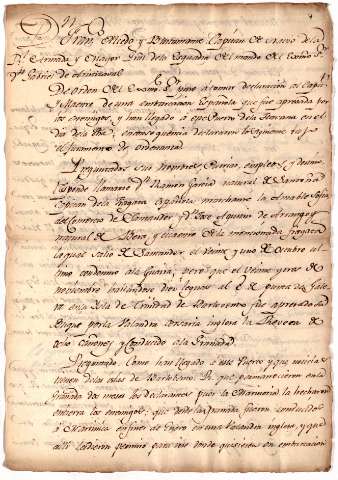 Dn Fran.co Olledo y Bustamante, Capitan de Navio de la
Rl. Armada y Mayor Gral. dela Esquadra del mando del Exmo. Sr.
Dn. Gabriel de Aristizaval
De orden del Exmo. Sr. pasé a tomar declaracion al Capn.
y Maestre de una embarcacion Española que fue apresada por
los enemigos, y han llegado a este Puerto de la Havana en el
dia de la fha, en consequencia declararon lo siguiente bajo
el Juramento de ordenanza
Preguntados sus nombres, Patrias, empleos, y demas
responde llamarse Dn. Ramon Garcia natural de Santander
Capitan dela Fragata Española, marchante la Amable Sofia
del Comercio de Santander, y Dn. Jose Aquino de
natural de y Maestre de la mencionada Fragata
la qual salio de Santander el veinte y uno de Octubre ul
timo con destino ala Guaira, pero que el veinte y tres de
Noviembre hallandose diez leguas al E de punta de Gale
ra en la Isla de Trinidad de Barlovento fue apresado su
Buque por la Balandra Corsaria inglesa la
ocho cañones y conducido ala Trinidad.
Preguntado Como han llegado a este Puerto y que noticia
tienen de las Islas de Barlovento. R. que permanecieron en la
dos meses los declarantes pues la Marineria la hecharon
en tierra los enemigos: que desde la fueron conducidos
a Martinica en fines de Enero en una Balandra inglesa, y que
alli les dieron permiso para irse donde quisiesen en embarcacion